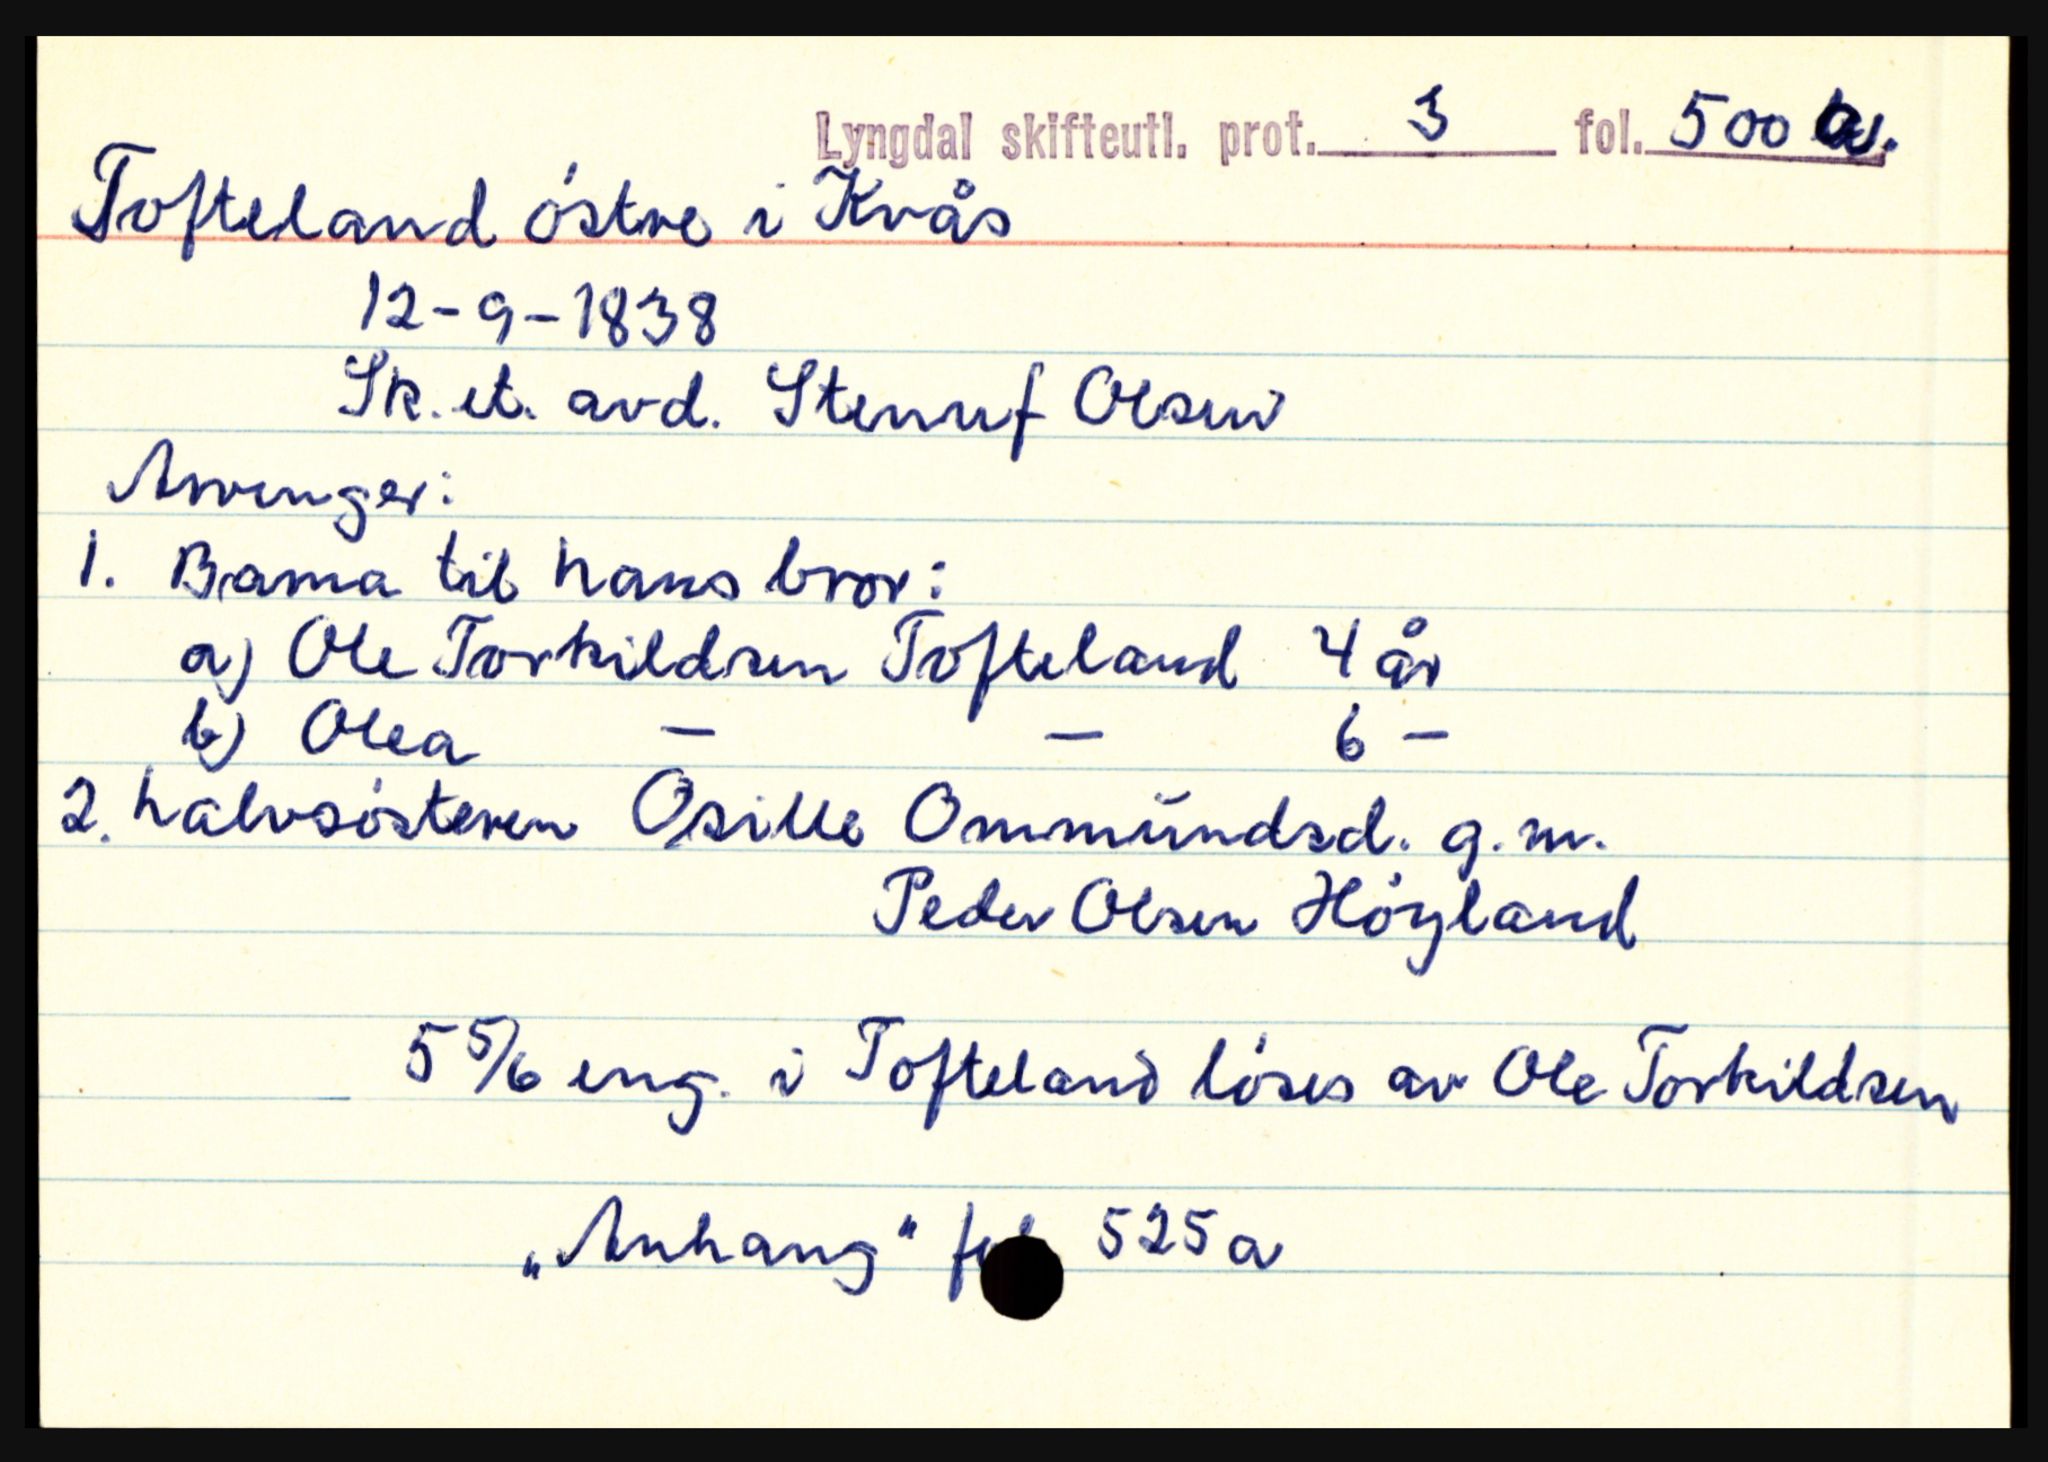 Lyngdal skifteutl. prot. 3 fol. 500 a.
Tofteland östre i Kvås
12-9-1838
Sk. et. avd. Stenuf Olsen
Arvinger:
1. Barna til hans bror:
a) Ole Torkildsen Tofteland 4 år
b) Olea — — 6 —
2. halvsösteren Osille Ommundsd. g.m.
Peder Olsen Höyland
5 5/6 eng. i Tofteland löses av Ole Torkildsen
„Anhang" 525a